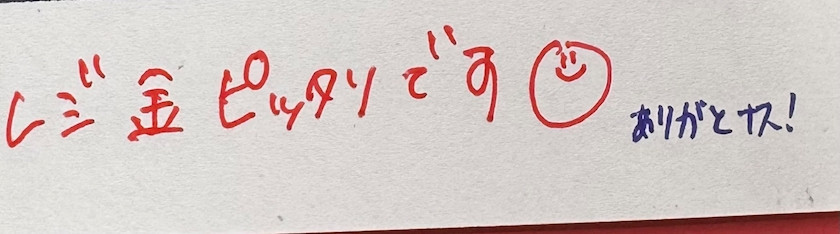 レジ金ピッタリです
ありがとナス!